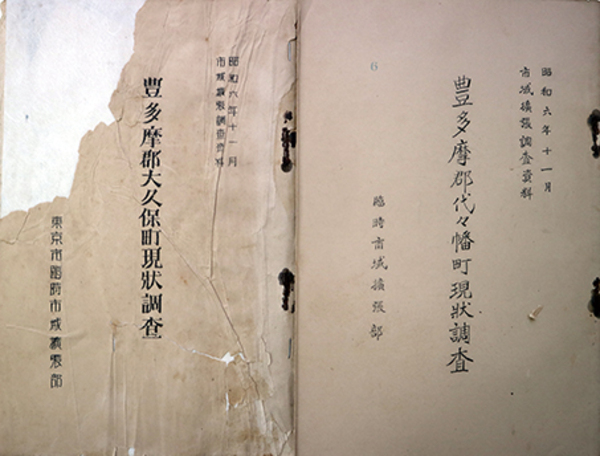 昭和六年十一月
市域擴張調査資料
豊多摩郡大久保町現狀調査
東京市臨時市域擴張部
昭和六年十一月
市域擴張調査資料
6
豊多摩郡代々幡町現狀調査
臨時市域擴張部